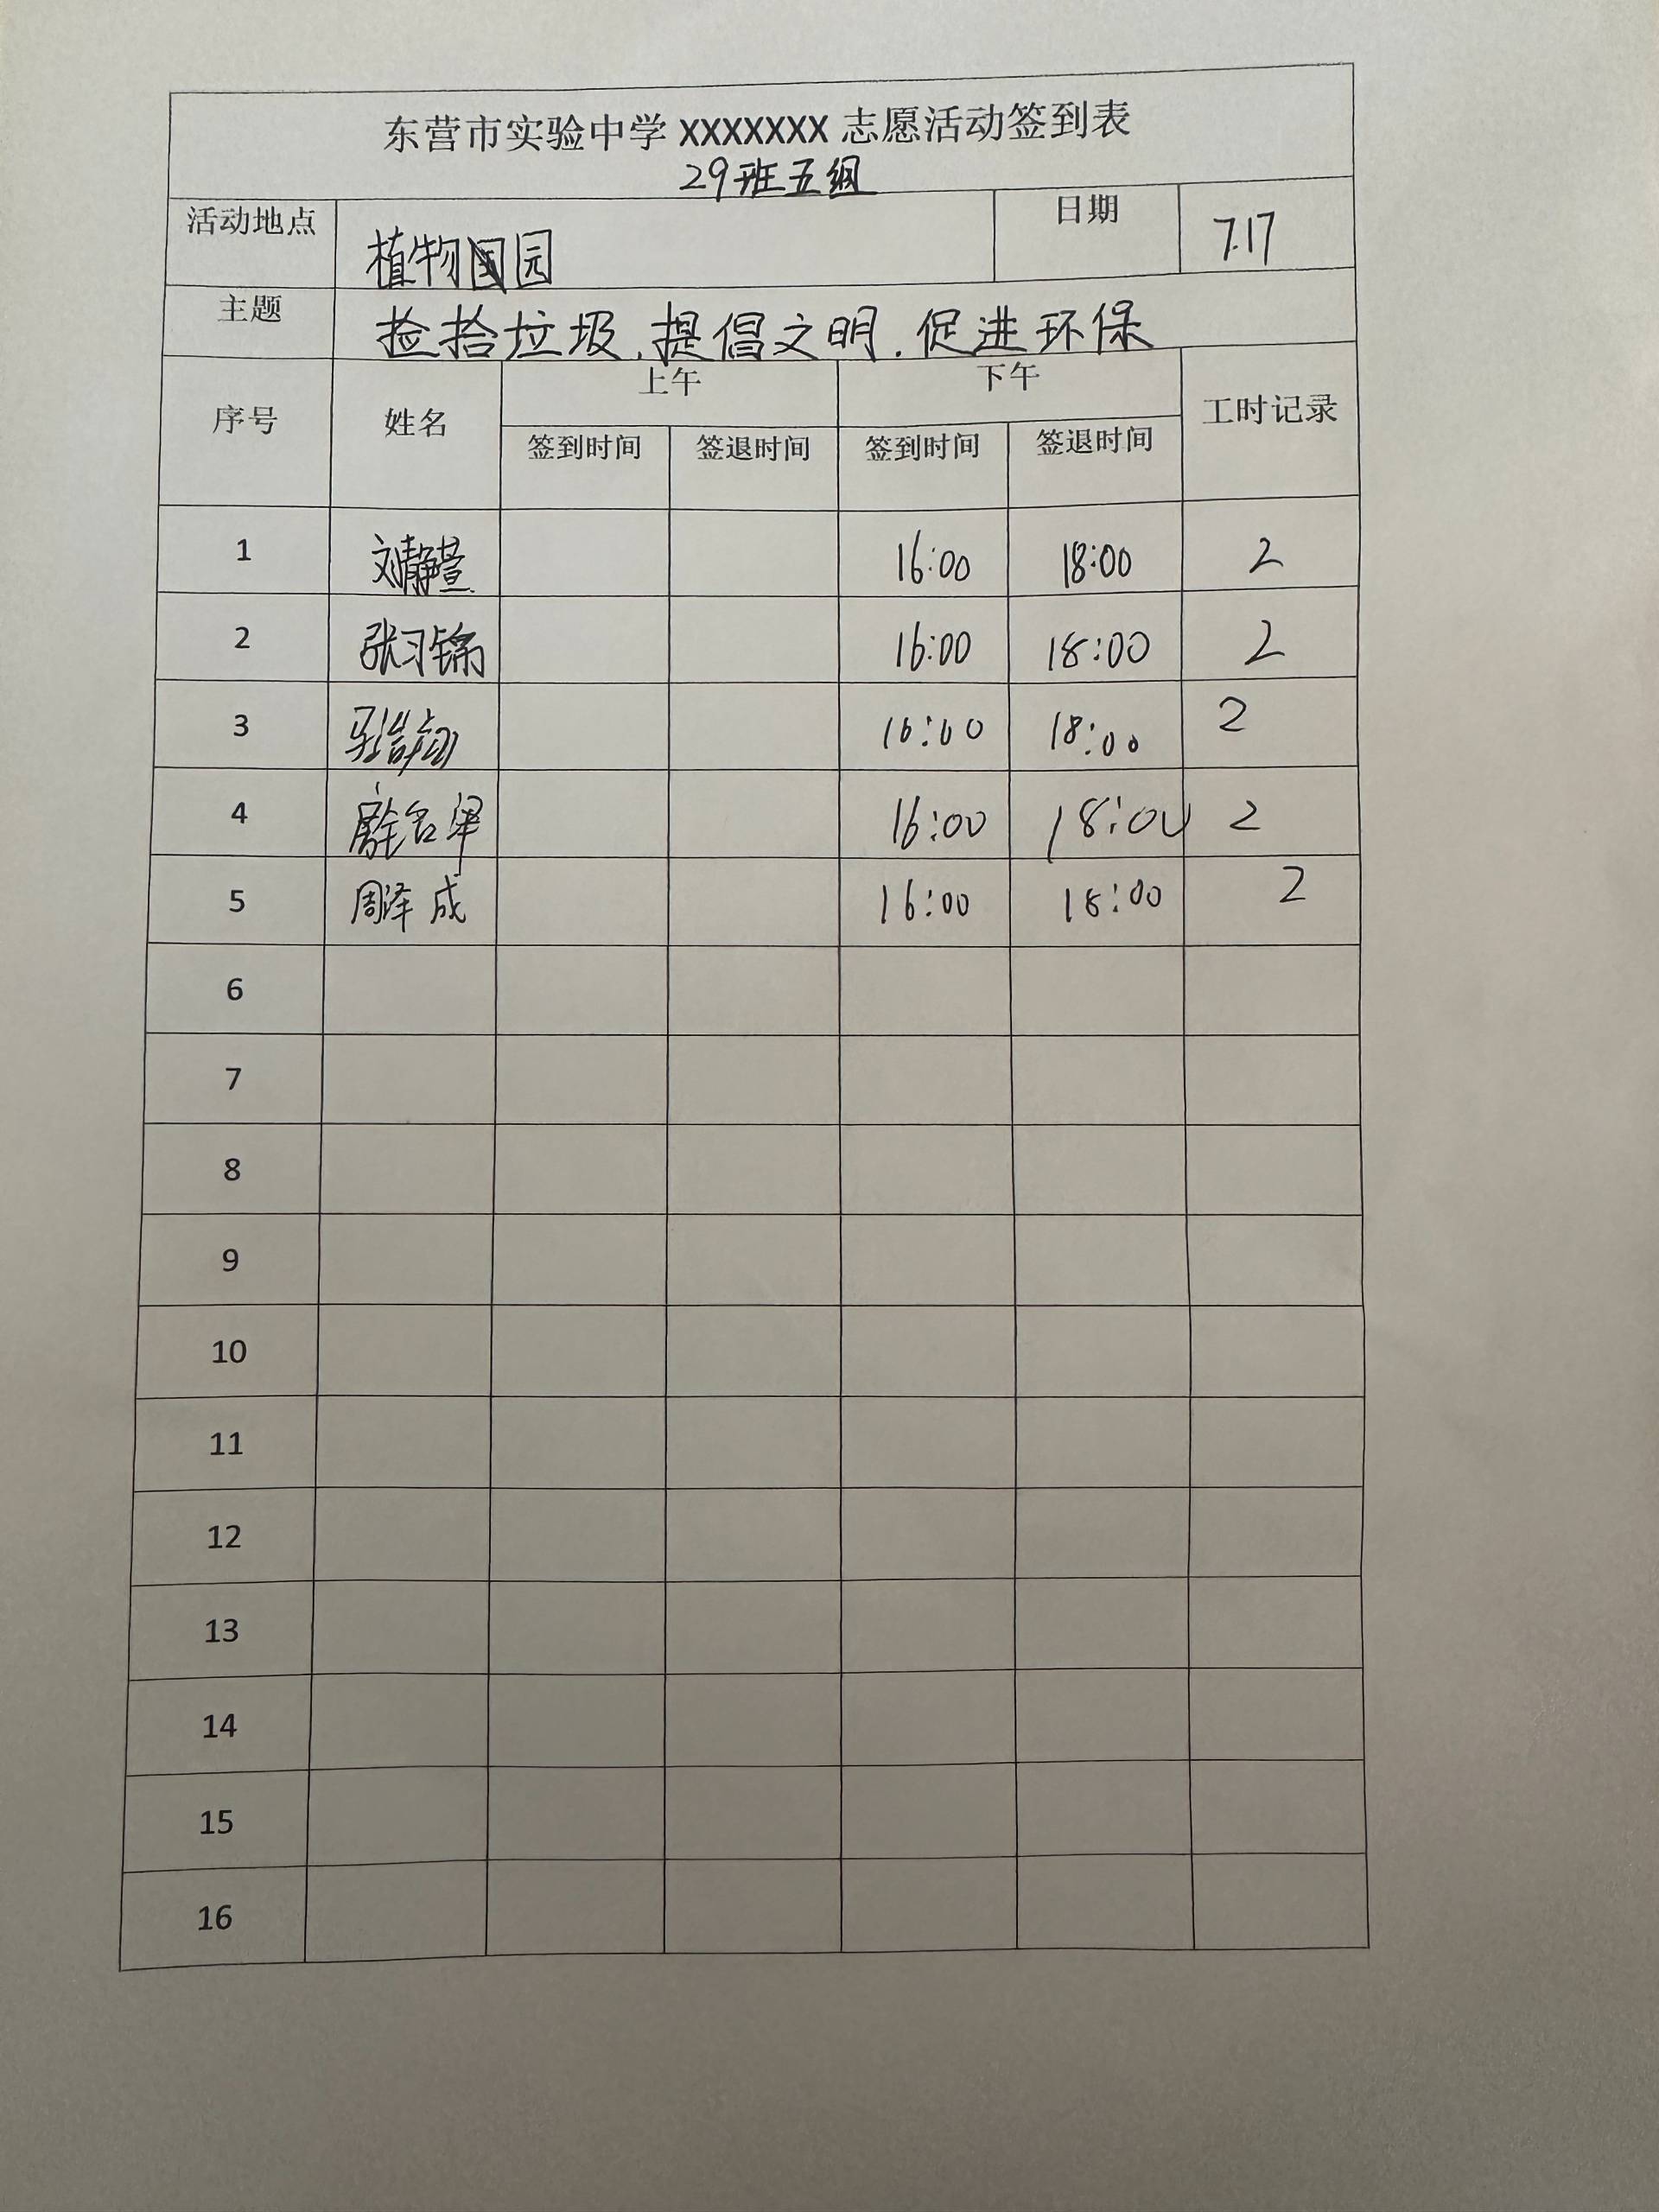 东营市实验中学 XXXXXXX 志愿活动签到表
29班五组
活动地点 植物园 日期 7.17
主题 捡拾垃圾,提倡文明,促进环保
序号 姓名 上午 下午 工时记录
签到时间 签退时间 签到时间 签退时间
1 刘静萱 16:00 18:00 2
2 张习锦 16:00 18:00 2
3 16:00 18:00 2
4 16:00 18:00 2
5 周泽成 16:00 18:00 2
6
7
8
9
10
11
12
13
14
15
16